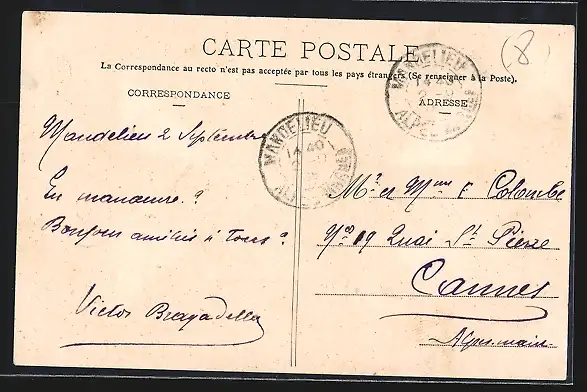 (8)
CARTE POSTALE
La Correspondance au recto n'est pas acceptée par tous les pays étrangers (Se renseigner à la Poste).
CORRESPONDANCE
ADRESSE
MANDELIEU
14 40
2 -9
ALPES
MANDELIEU
14 40
Mandelieu 2 Septembre
En manœuvre ?
Bonjour amitiés à Tous
Victor Bragadella
Mr et Mme E. Colombe
No 19 Quai St Pierre
Cannes
Alpes-marit.